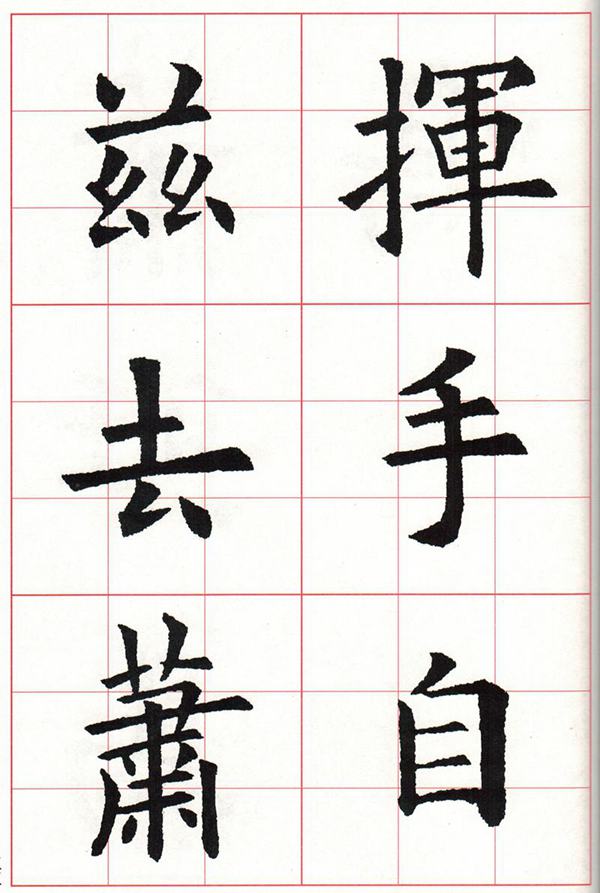 揮手自
茲去蕭